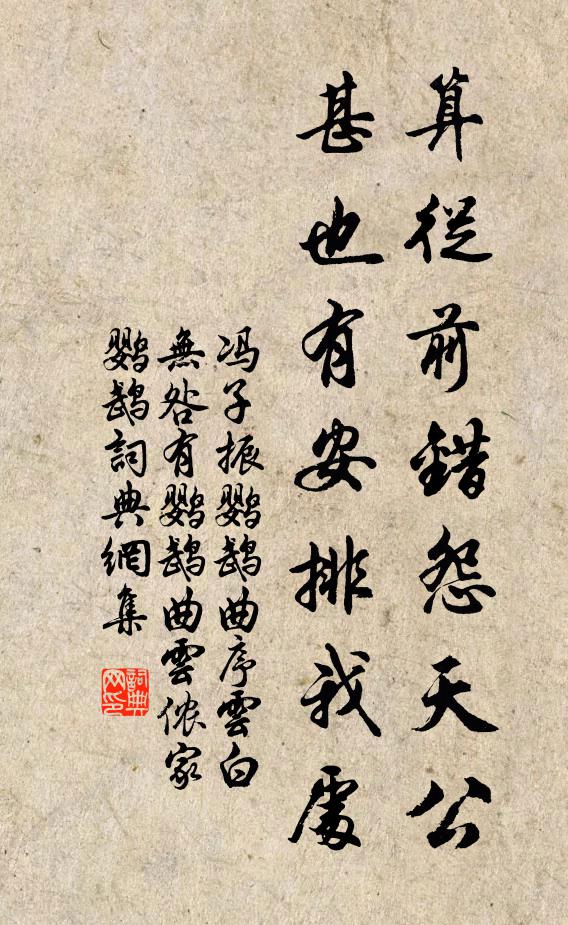 算從前錯怨天公
甚也有安排我處
冯子振鹦鹉曲序雲白
無咎有鹦鹉曲雲侬家
鹦鹉詞典網集
詞典
网印